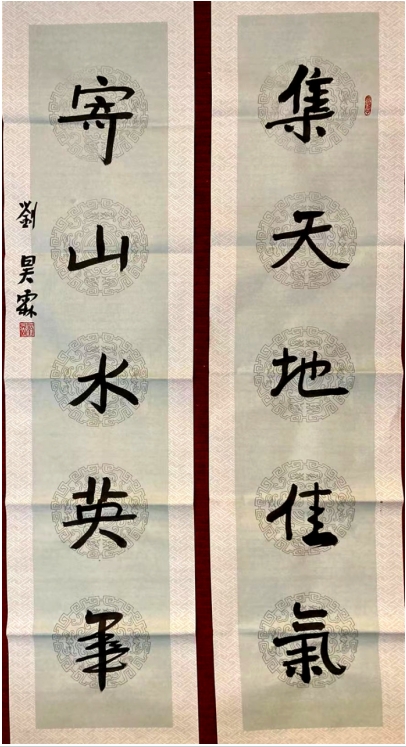 集天地佳氣
寄山水英華
劉昊霖